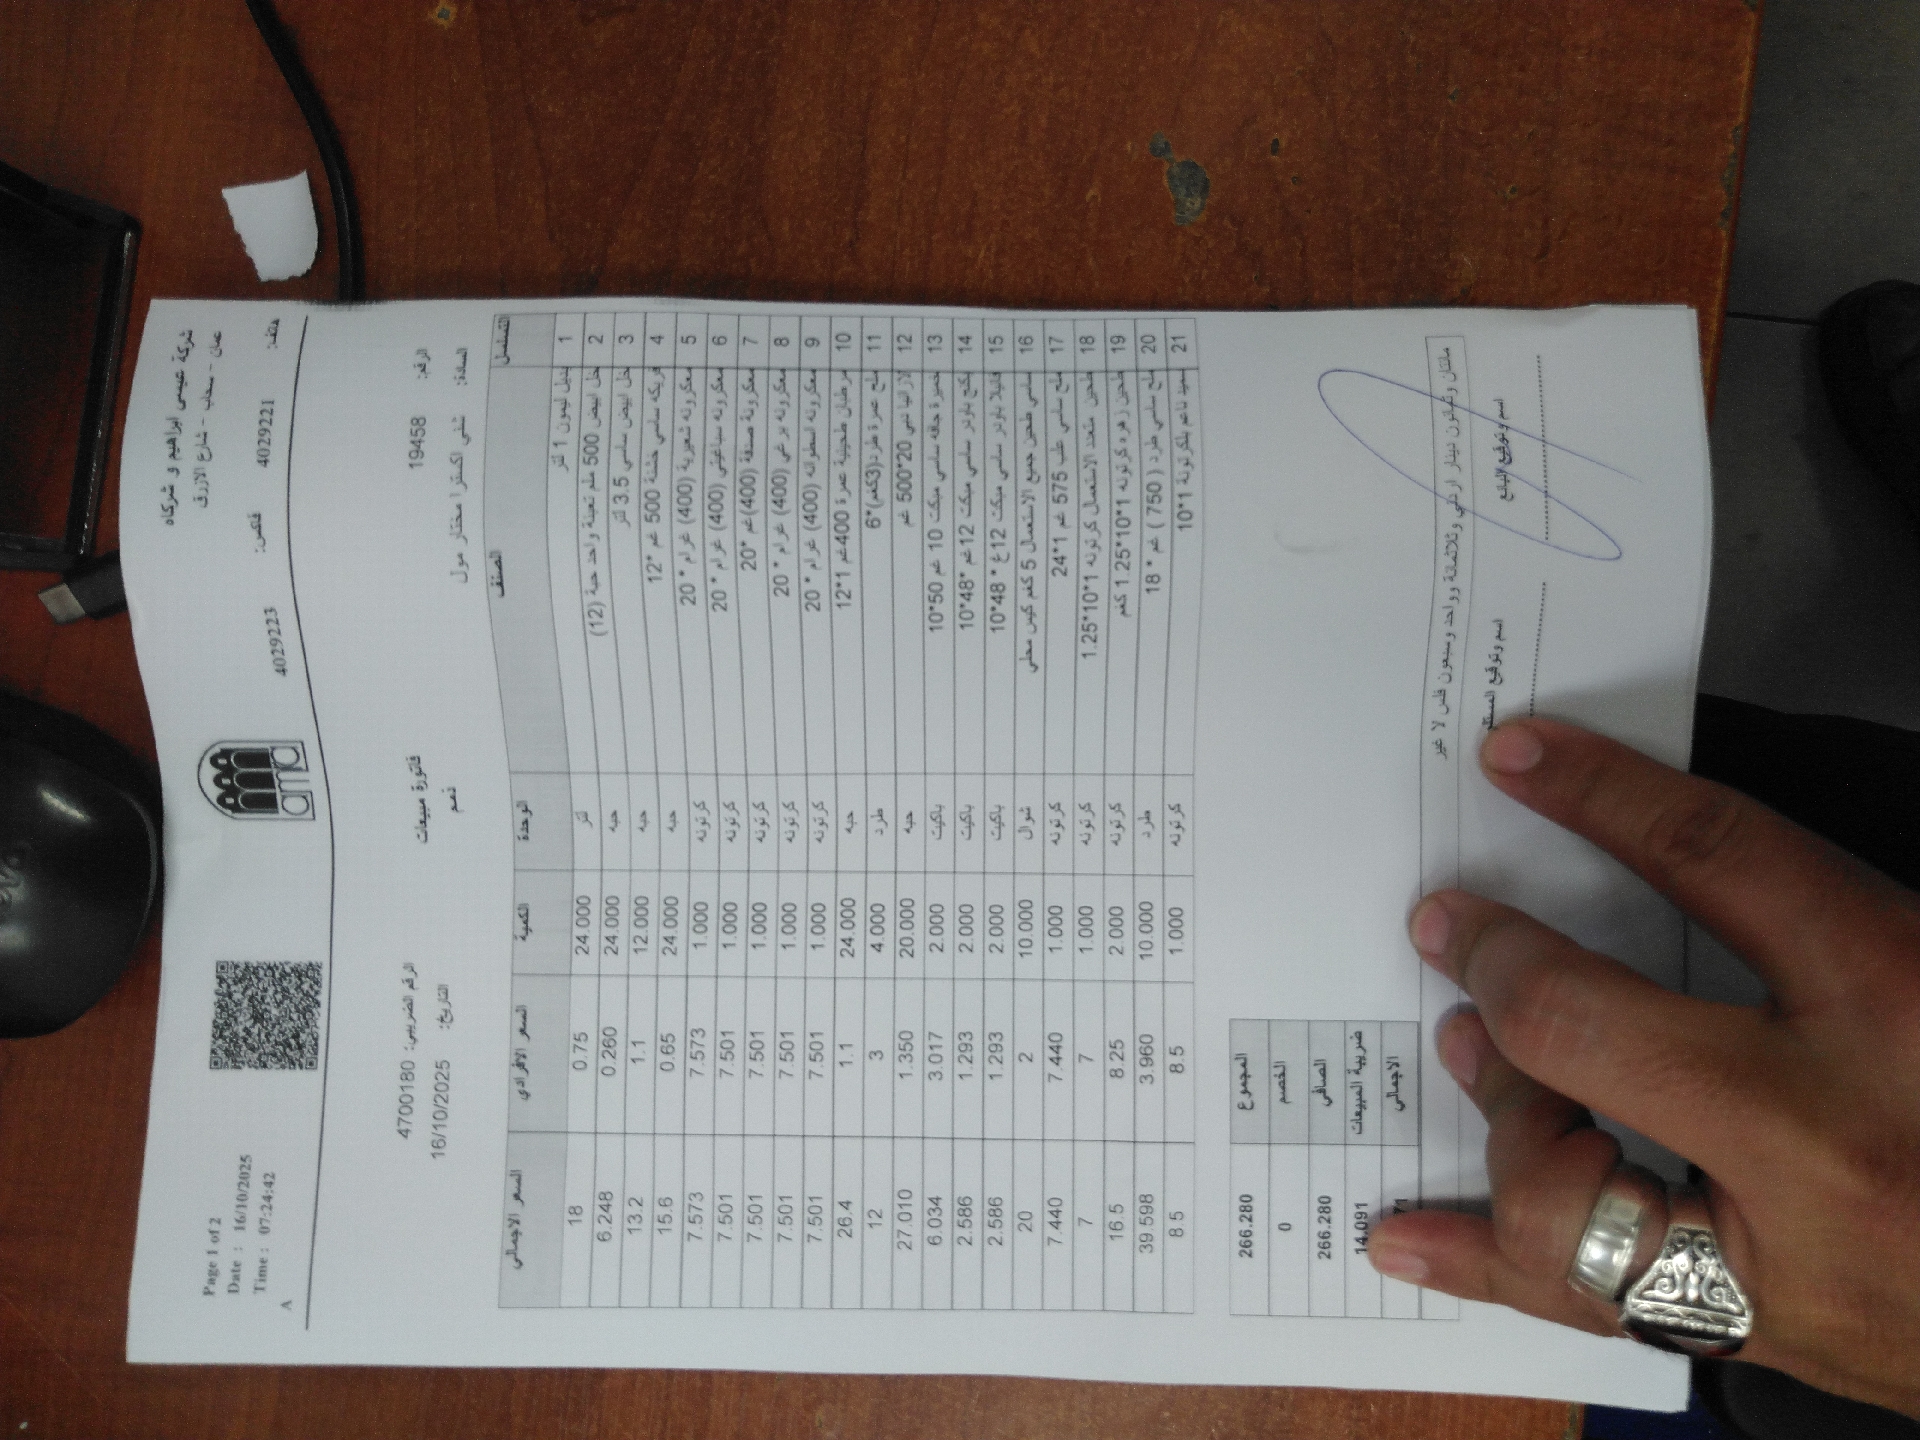 شركة عيسى ابراهيم و شركاه
عمان - سحاب - شارع الازرق
هاتف: 4029221 فاكس: 4029223
ama
Page 1 of 2
Date : 16/10/2025
Time : 07:24:42
A
الرقم: 19458 فاتورة مبيعات الرقم الضريبي: 4700180
السادة: شفي اكسترا مختار مول ذمم التاريخ: 16/10/2025
التسلسل الصنف الوحدة الكمية السعر الافرادي السعر الاجمالي
1 بديل ليمون 1 لتر لتر 24.000 0.75 18
2 خل ابيض 500 ملم تعبئة واحد حبة (12) حبه 24.000 0.260 6.248
3 خل ابيض ساسي 3.5 لتر حبه 12.000 1.1 13.2
4 فريكه ساسي خشنة 500 غم *12 حبه 24.000 0.65 15.6
5 معكرونه شعيرية (400) غرام * 20 كرتونه 1.000 7.573 7.573
6 معكرونه سباغيتي (400) غرام * 20 كرتونه 1.000 7.501 7.501
7 معكرونة صدفة (400) غم *20 كرتونه 1.000 7.501 7.501
8 معكرونه برغي (400) غرام * 20 كرتونه 1.000 7.501 7.501
9 معكرونه اسطوانه (400) غرام * 20 كرتونه 1.000 7.501 7.501
10 مرطبان طحينية عمرة 400غم 1*12 حبه 24.000 1.1 26.4
11 ملح عمرة طرد(3كغم)*6 طرد 4.000 3 12
12 لازانيا دبي 20*500 غم حبه 20.000 1.350 27.010
13 خميرة جافه ساسي مبكت 10 غم 50*10 باكيت 2.000 3.017 6.034
14 بكنج باودر ساسي مبكت 12غم *48*10 باكيت 2.000 1.293 2.586
15 فانيلا باودر ساسي مبكت 12غ * 48*10 باكيت 2.000 1.293 2.586
16 ساسي طحين جميع الاستعمال 5 كغم كيس محلي شوال 10.000 2 20
17 ملح ساسي علب 575 غم 1*24 كرتونه 1.000 7.440 7.440
18 طحين متعدد الاستعمال كرتونه 1*10*1.25 كرتونه 1.000 7 7
19 طحين زهره كرتونه 1*10*1.25 كغم كرتونه 2.000 8.25 16.5
20 ملح ساسي طرد ( 750 ) غم * 18 طرد 10.000 3.960 39.598
21 سميد ناعم بلكرتونة 1*10 كرتونه 1.000 8.5 8.5
المجموع 266.280
الخصم 0
الصافي 266.280
ضريبة المبيعات 14.091
الاجمالي
مئتان وثمانون دينار اردني وثلاثمائة وواحد وسبعون فلس لا غير
اسم وتوقيع البائع اسم وتوقيع